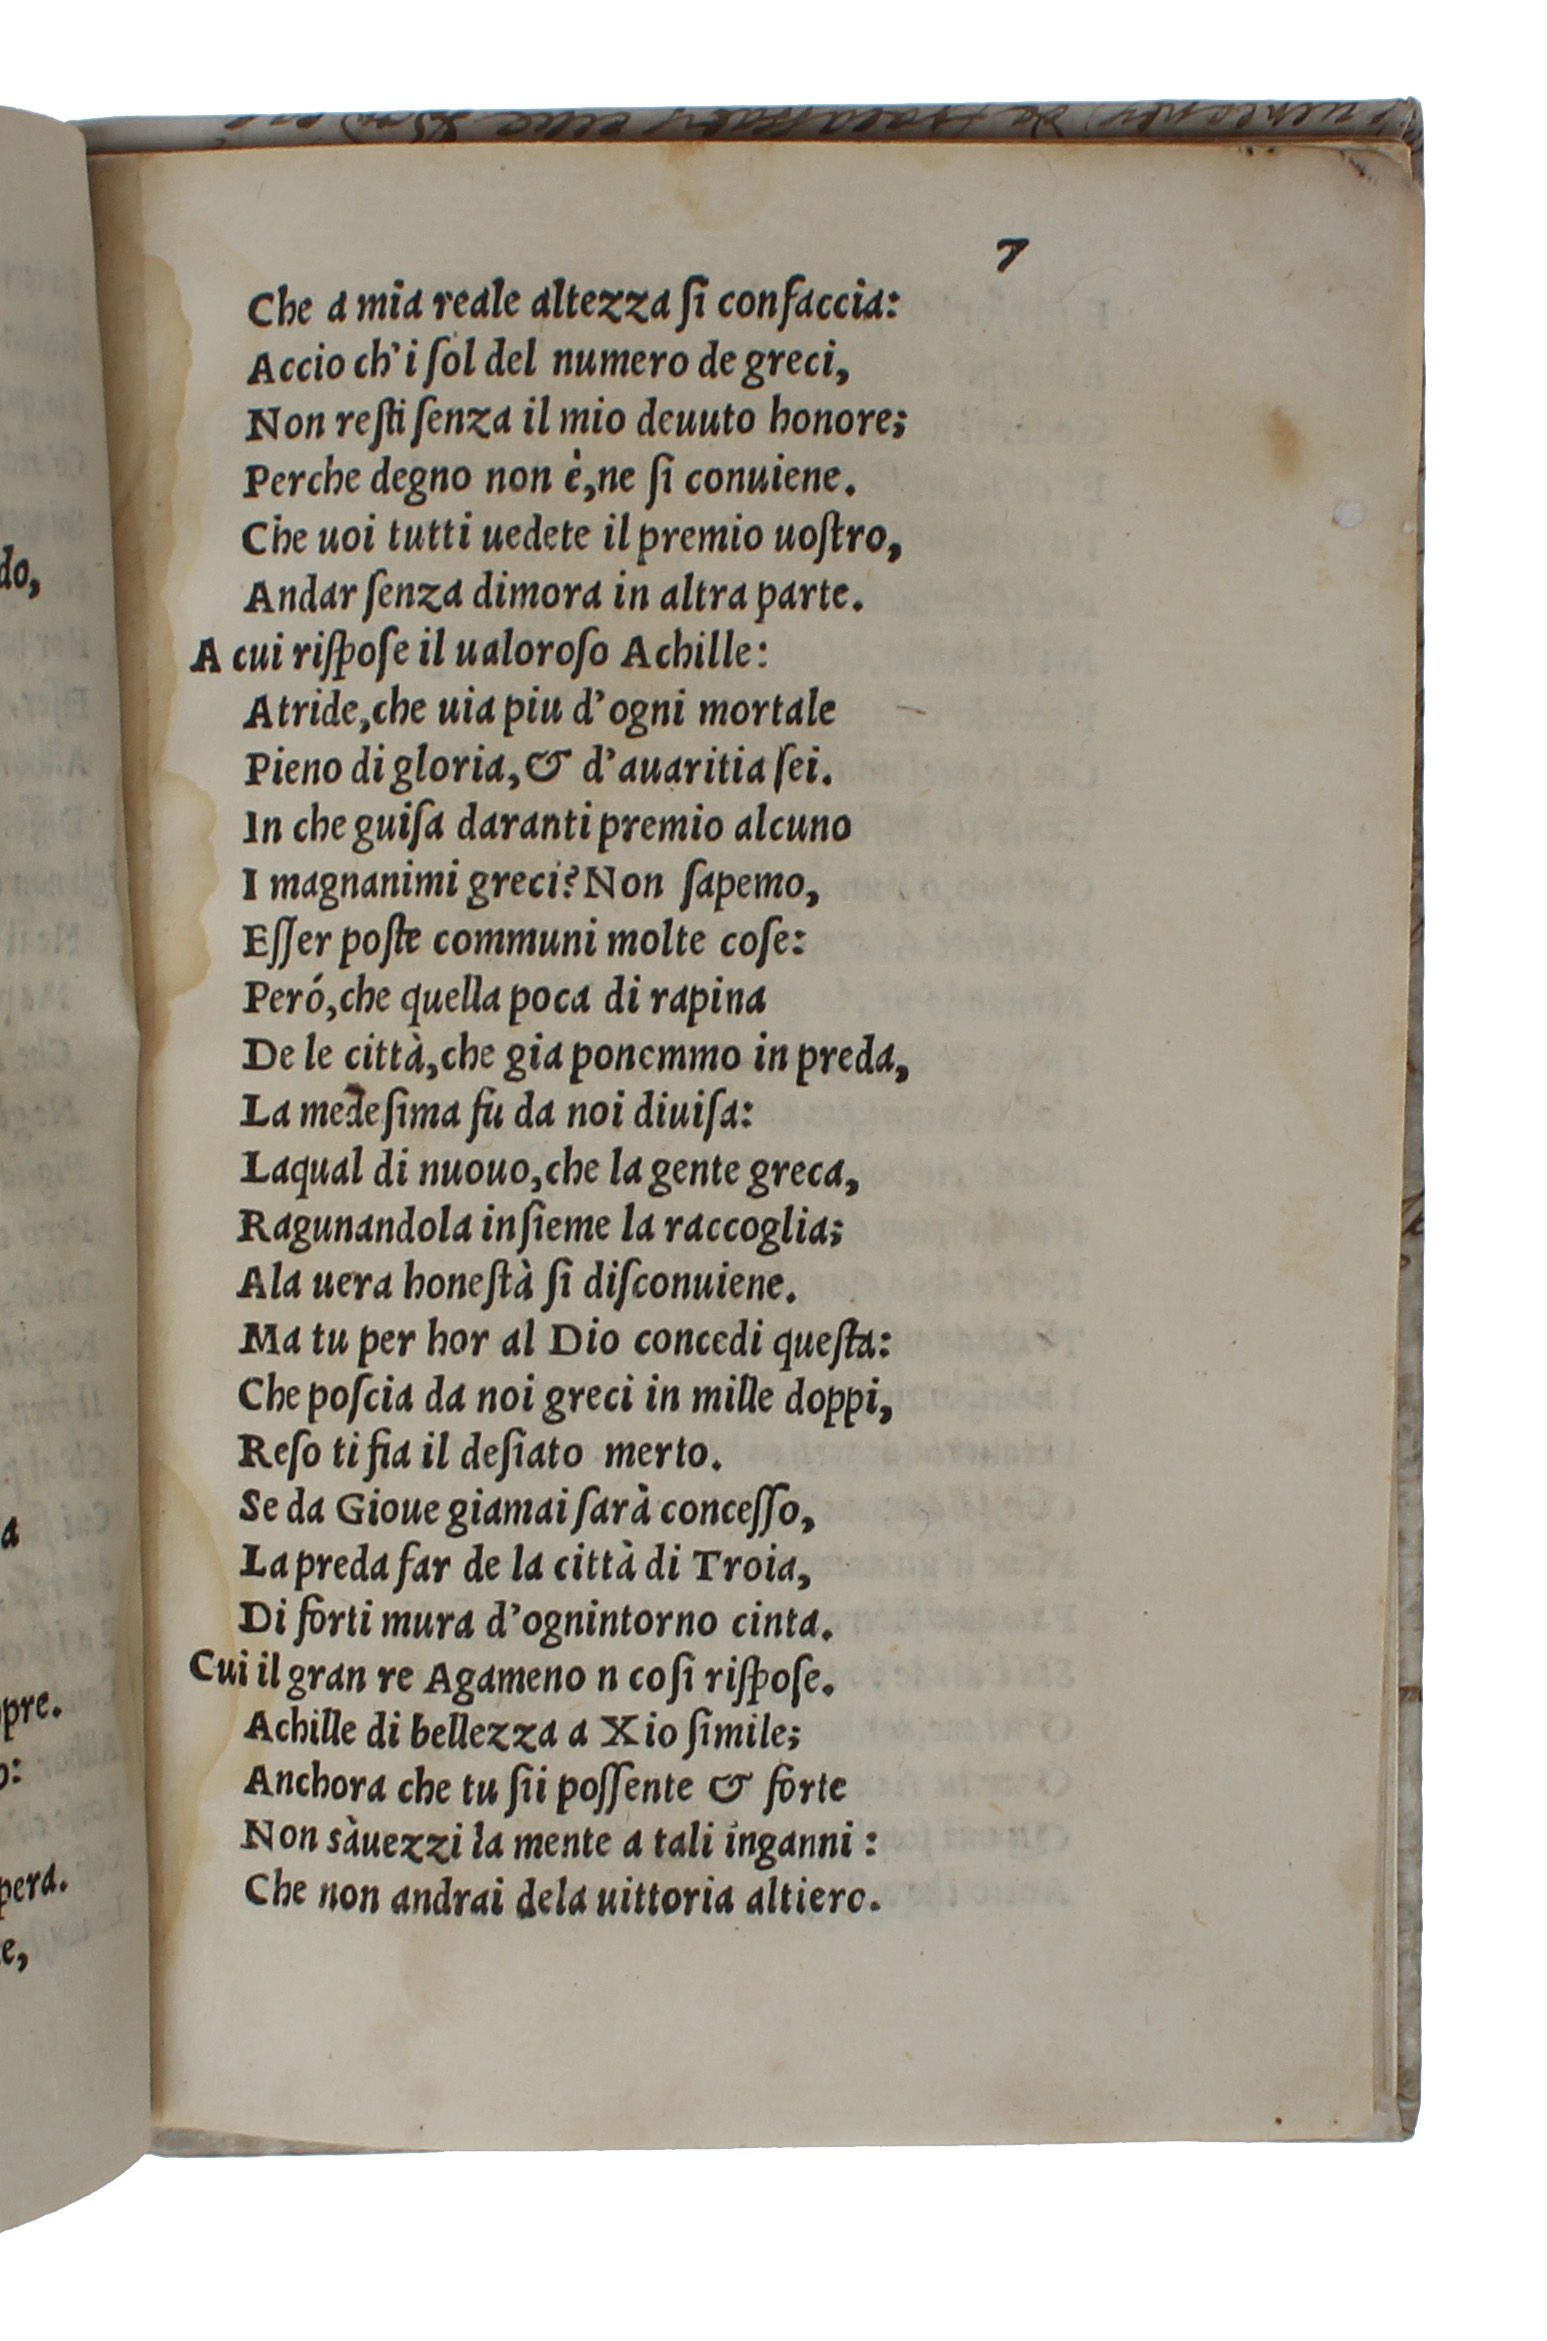 7
Che a mia reale altezza ſi confaccia:
Accio ch'i ſol del numero de greci,
Non reſti ſenza il mio deuuto honore;
Perche degno non è,ne ſi conuiene.
Che uoi tutti uedete il premio uoſtro,
Andar ſenza dimora in altra parte.
A cui riſpoſe il ualoroſo Achille:
Atride,che uia piu d'ogni mortale
Pieno di gloria,& d'auaritia ſei.
In che guiſa daranti premio alcuno
I magnanimi greci? Non ſapemo,
Eſſer poſte communi molte coſe:
Peró,che quella poca di rapina
De le città,che gia ponemmo in preda,
La medeſima fu da noi diuiſa:
Laqual di nuouo,che la gente greca,
Ragunandola inſieme la raccoglia;
Ala uera honeſtà ſi diſconuiene.
Ma tu per hor al Dio concedi queſta:
Che poſcia da noi greci in mille doppi,
Reſo ti fia il deſiato merto.
Se da Gioue giamai ſarà conceſſo,
La preda far de la città di Troia,
Di forti mura d'ognintorno cinta.
Cui il gran re Agameno n coſi riſpoſe.
Achille di bellezza a Xio ſimile;
Anchora che tu ſii poſſente & forte
Non sàuezzi la mente a tali inganni :
Che non andrai dela uittoria altiero.
do,
a
opre.
o:
pera.
e,